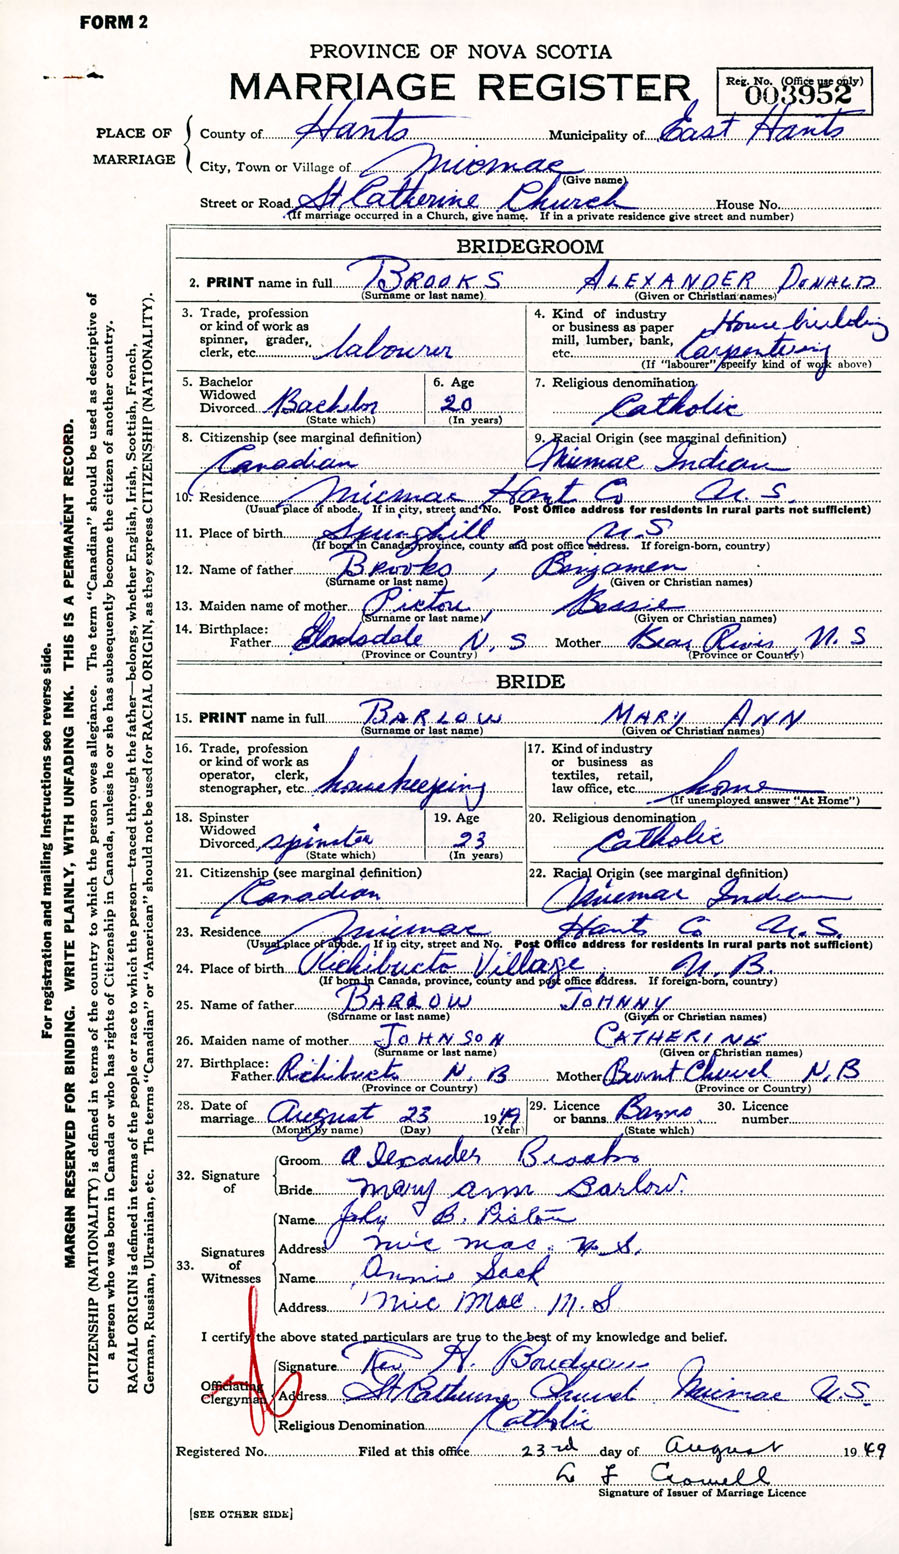 FORM 2
PROVINCE OF NOVA SCOTIA
MARRIAGE REGISTER
Reg. No. (Office use only)
003952
PLACE OF MARRIAGE
County of Hants Municipality of East Hants
City, Town or Village of Micmac
(Give name)
Street or Road St Catherine Church House No.
(If marriage occurred in a Church, give name. If in a private residence give street and number)
BRIDEGROOM
2. PRINT name in full BROOKS ALEXANDER DONALD
(Surname or last name) (Given or Christian names)
3. Trade, profession or kind of work as spinner, grader, clerk, etc. labourer
4. Kind of industry or business as paper mill, lumber, bank, etc. House building Carpentering
(If "labourer" specify kind of work above)
5. Bachelor Widowed Divorced Bachelor
(State which)
6. Age 20
(In years)
7. Religious denomination Catholic
8. Citizenship (see marginal definition) Canadian
9. Racial Origin (see marginal definition) Micmac Indian
10. Residence Micmac Hant Co N.S.
(Usual place of abode. If in city, street and No. Post Office address for residents in rural parts not sufficient)
11. Place of birth Springhill N.S
(If born in Canada, province, county and post office address. If foreign-born, country)
12. Name of father Brooks, Benjamen
(Surname or last name) (Given or Christian names)
13. Maiden name of mother Pictou, Bessie
(Surname or last name) (Given or Christian names)
14. Birthplace: Father N.S Mother Bear River, N.S
(Province or Country) (Province or Country)
BRIDE
15. PRINT name in full BARLOW MARY ANN
(Surname or last name) (Given or Christian names)
16. Trade, profession or kind of work as operator, clerk, stenographer, etc. housekeeping
17. Kind of industry or business as textiles, retail, law office, etc. home
(If unemployed answer "At Home")
18. Spinster Widowed Divorced spinster
(State which)
19. Age 23
(In years)
20. Religious denomination Catholic
21. Citizenship (see marginal definition) Canadian
22. Racial Origin (see marginal definition) Micmac Indian
23. Residence Micmac Hants Co N.S.
(Usual place of abode. If in city, street and No. Post Office address for residents in rural parts not sufficient)
24. Place of birth Richibucto Village, N.B.
(If born in Canada, province, county and post office address. If foreign-born, country)
25. Name of father BARLOW JOHNNY
(Surname or last name) (Given or Christian names)
26. Maiden name of mother JOHNSON CATHERINE
(Surname or last name) (Given or Christian names)
27. Birthplace: Father Richibucto N.B Mother Burnt Church N.B
(Province or Country) (Province or Country)
28. Date of marriage August 23 1949
(Month by name) (Day) (Year)
29. Licence or banns Banns
(State which)
30. Licence number
32. Signature of
Groom Alexander Brooks
Bride Mary Ann Barlow.
33. Signatures of Witnesses
Name John B. Pictou
Address Mic Mac. N.S.
Name Annie Sack
Address Mic Mac. N.S
I certify the above stated particulars are true to the best of my knowledge and belief.
Officiating Clergyman
Signature Rev H. Boudreau
Address St Catherine Church Micmac N.S.
Religious Denomination Catholic
Registered No. Filed at this office 23rd day of August 1949
L F Crowell
Signature of Issuer of Marriage Licence
[SEE OTHER SIDE]
For registration and mailing instructions see reverse side.
MARGIN RESERVED FOR BINDING. WRITE PLAINLY, WITH UNFADING INK. THIS IS A PERMANENT RECORD.
CITIZENSHIP (NATIONALITY) is defined in terms of the country to which the person owes allegiance. The term "Canadian" should be used as descriptive of
a person who was born in Canada or who has rights of Citizenship in Canada, unless he or she has subsequently become the citizen of another country.
RACIAL ORIGIN is defined in terms of the people or race to which the person—traced through the father—belongs, whether English, Irish, Scottish, French,
German, Russian, Ukrainian, etc. The terms "Canadian" or "American" should not be used for RACIAL ORIGIN, as they express CITIZENSHIP (NATIONALITY).